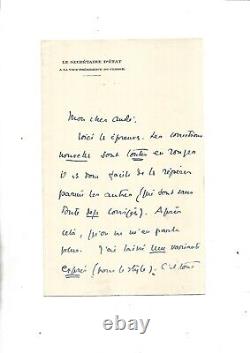 LE SECRÉTAIRE D'ÉTAT
A LA VICE-PRÉSIDENCE DU CONSEIL
Mon cher André.
Voici les épreuves. Les corrections
nouvelles sont toutes en rouge
il vous facile de les repérer
parmi les autres (qui sont sans
doute déjà corrigées). Après
cela, qu'on ne m'en parle
plus. J'ai laissé une variante
exprès (pour le style). C'est tout